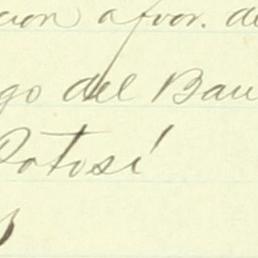 cion a fvor. de
go del Ban
Potosí